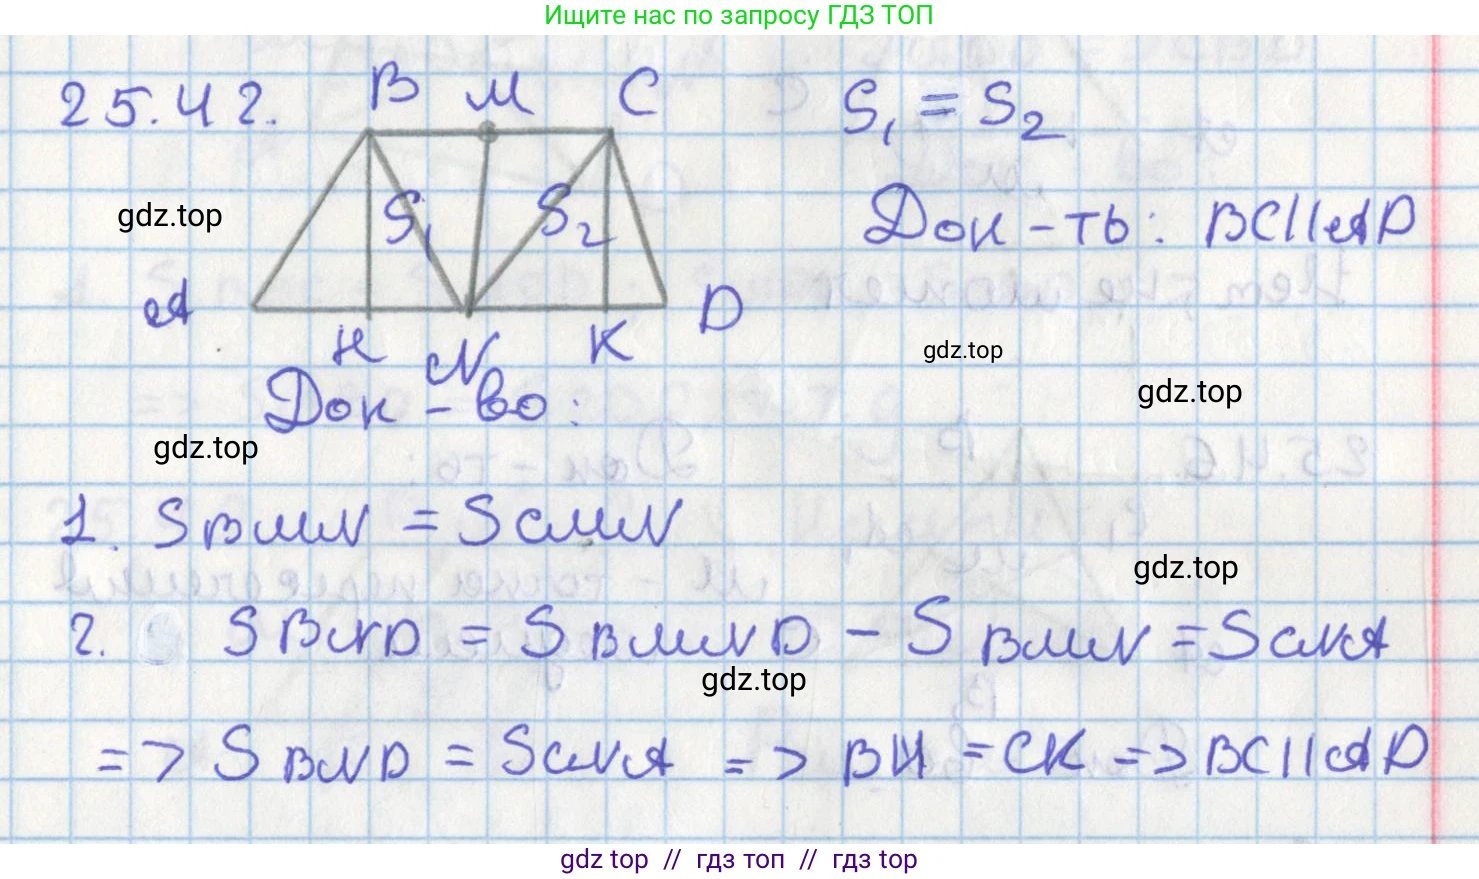 Ищите нас по запросу ГДЗ ТОП
25.42. B M C S₁ = S₂
gdz.top S₁ S₂ Док-ть: BC||AD
A D
H N K gdz.top
gdz.top
Док-во:
gdz.top
1. SBMN = SCMN
gdz.top
2. SBND = SBMND - SBMN = SCNA
gdz.top
=> SBND = SCNA => BH = CK => BC||AD
gdz top // гдз топ // гдз top